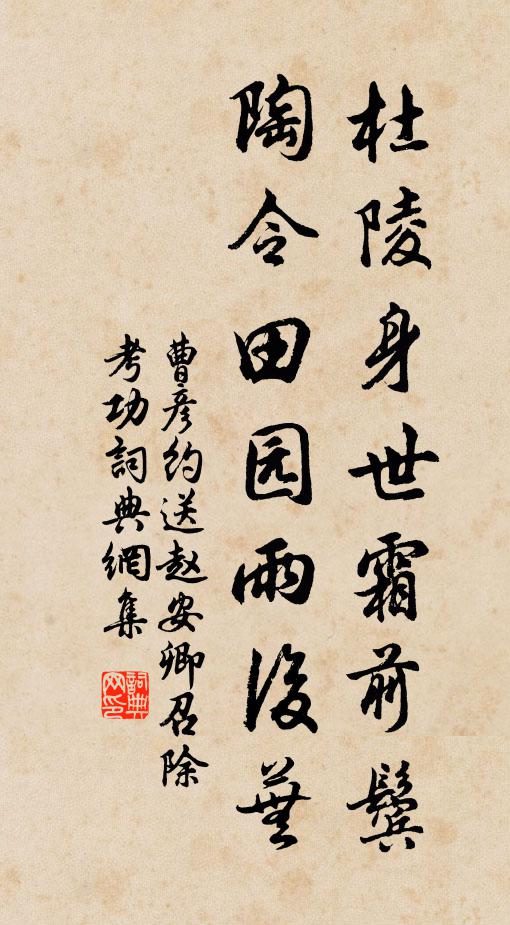 杜陵身世霜前鬓
陶令田园雨後蕪
曹彦约送赵安卿召除
考功詞典網集
詞典
网印